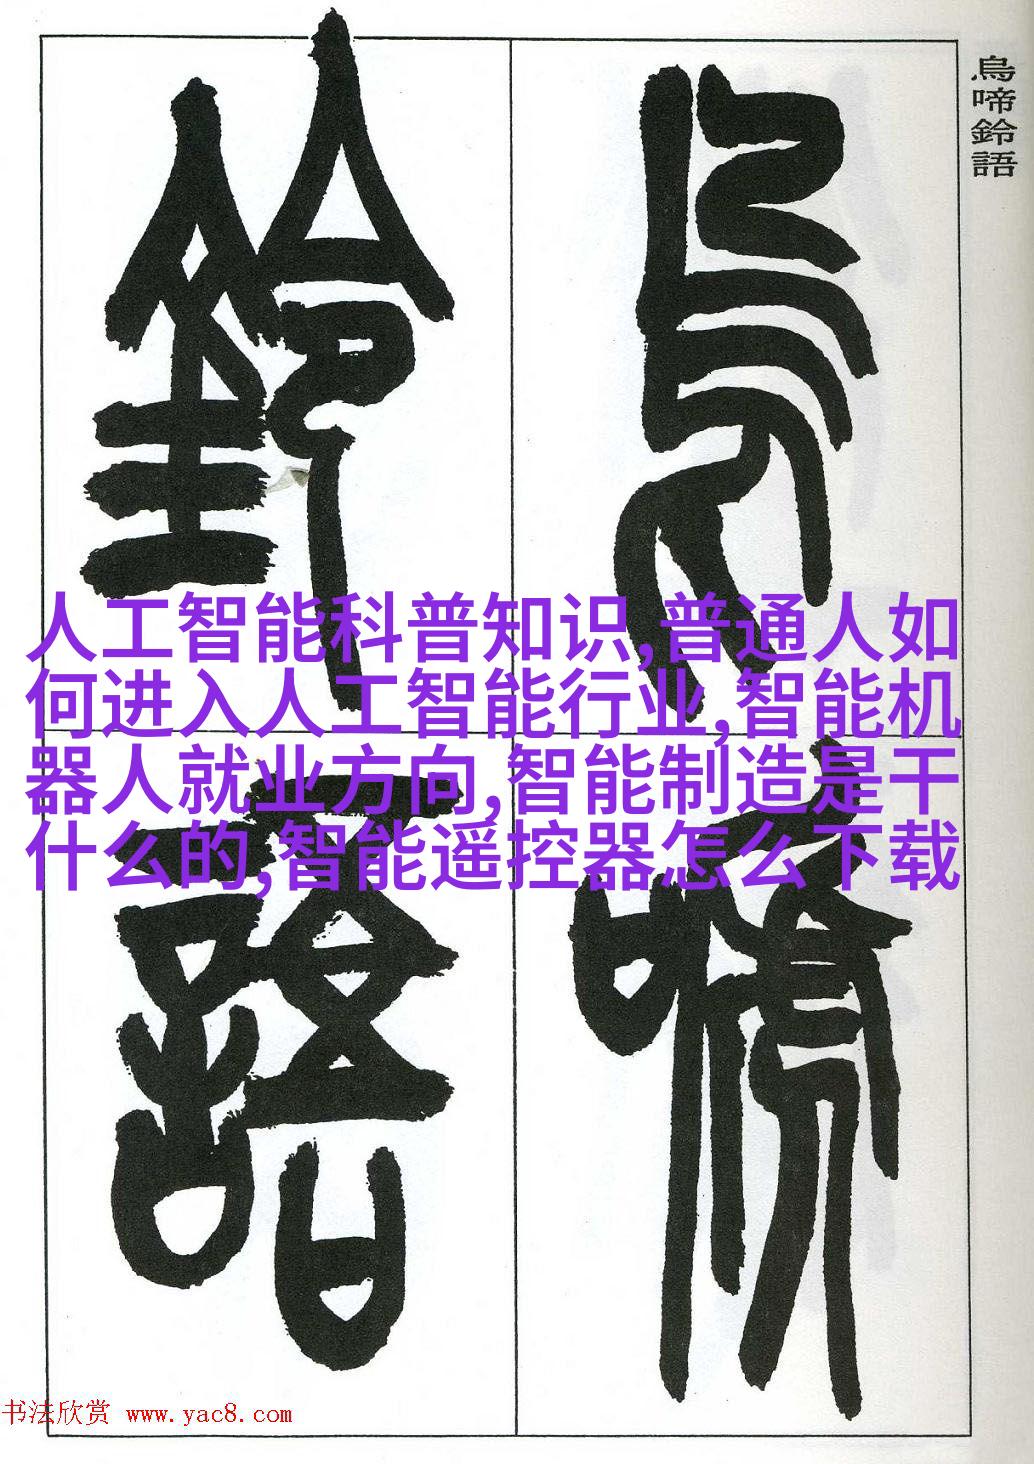 鳥啼鈴語
鳥啼
鈴語
人工智能科普知识,普通人如
何进入人工智能行业,智能机
器人就业方向,智能制造是干
什么的,智能遥控器怎么下载
书法欣赏 www.yac8.com